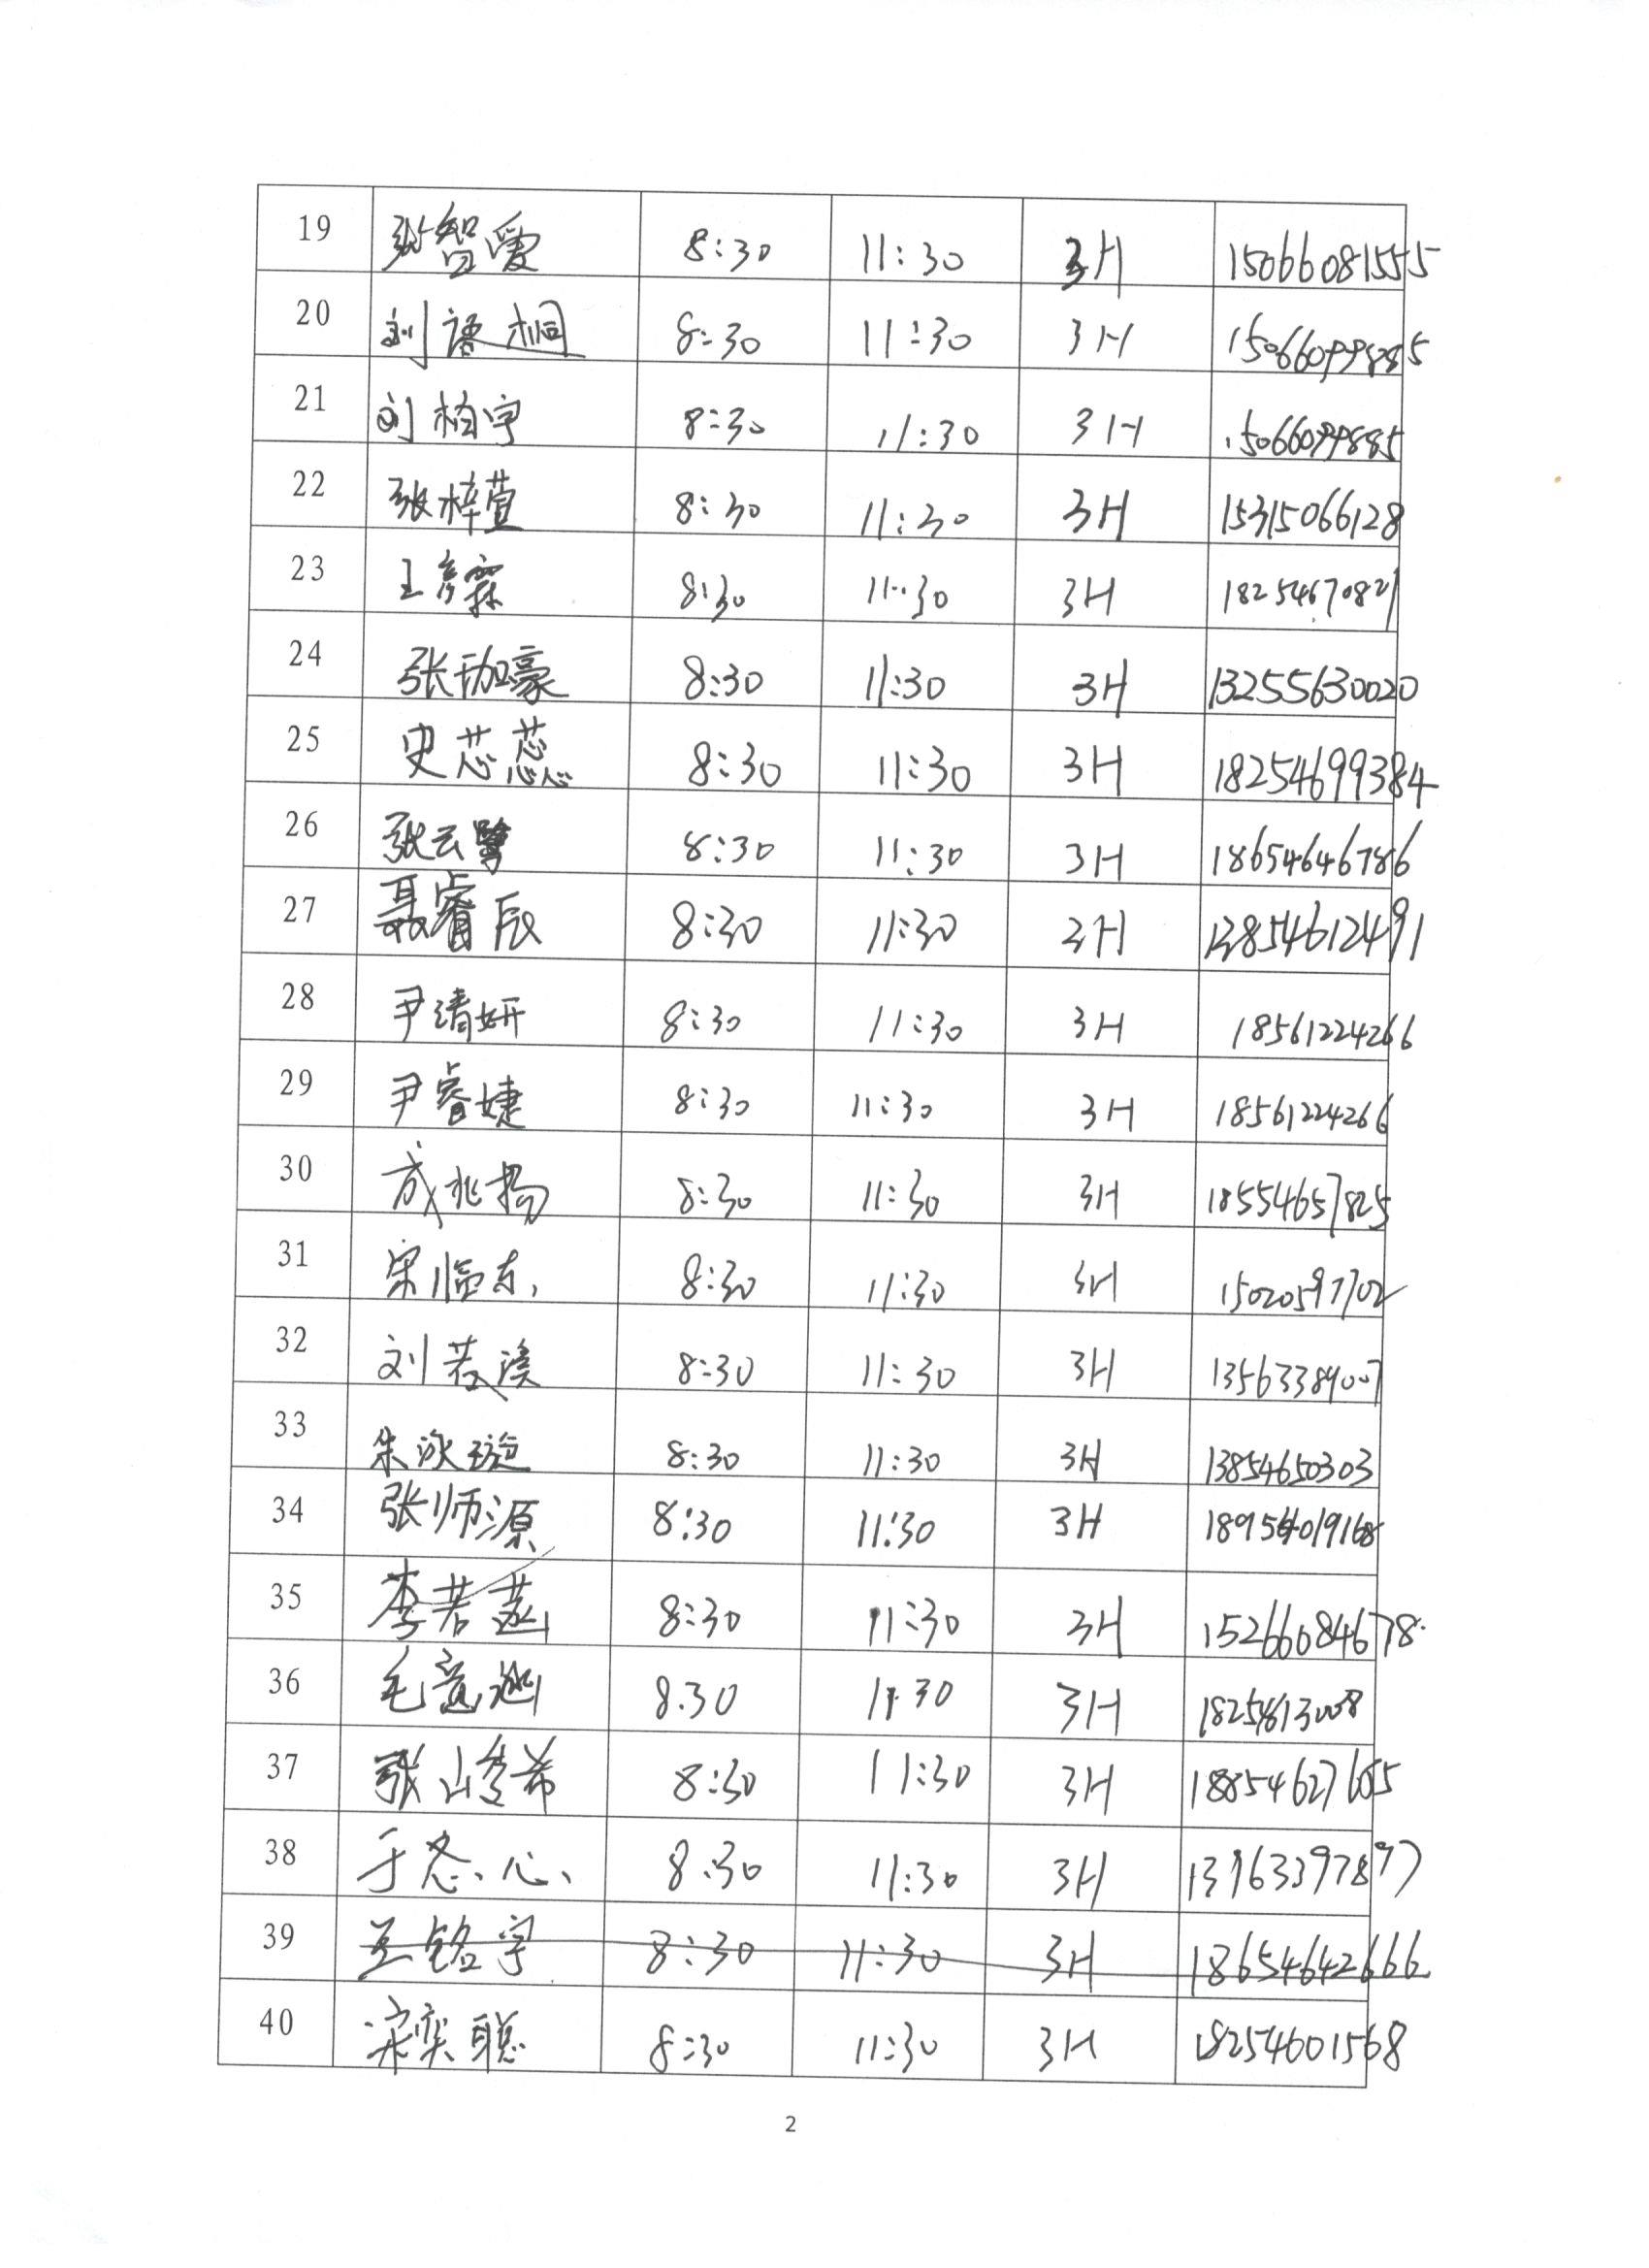 19 张智爱 8:30 11:30 3H 15066081555
20 刘语桐 8:30 11:30 3H 15066099885
21 刘柏宇 8:30 11:30 3H 15066099885
22 张梓萱 8:30 11:30 3H 15315066128
23 王彦霖 8:30 11:30 3H 18254670821
24 张珈豪 8:30 11:30 3H 13255630020
25 史芯蕊 8:30 11:30 3H 18254699384
26 张云鹭 8:30 11:30 3H 18654646786
27 聂睿辰 8:30 11:30 3H 13854612491
28 尹清妍 8:30 11:30 3H 18561224266
29 尹睿婕 8:30 11:30 3H 18561224266
30 成兆扬 8:30 11:30 3H 18554657825
31 宋临东 8:30 11:30 3H 15020597702
32 刘若溪 8:30 11:30 3H 13563384007
33 朱泳璇 8:30 11:30 3H 13854650303
34 张师源 8:30 11:30 3H
35 李若菡 8:30 11:30 3H 15266084678
36 毛意涵 8.30 11 30 3H
37 张山雯希 8:30 11:30 3H 18854627605
38 于冬心 8:30 11:30 3H
39 王铭宇 8:30 11:30 3H 18654642666
40 宋奕聪 8:30 11:30 3H 18254601568
2